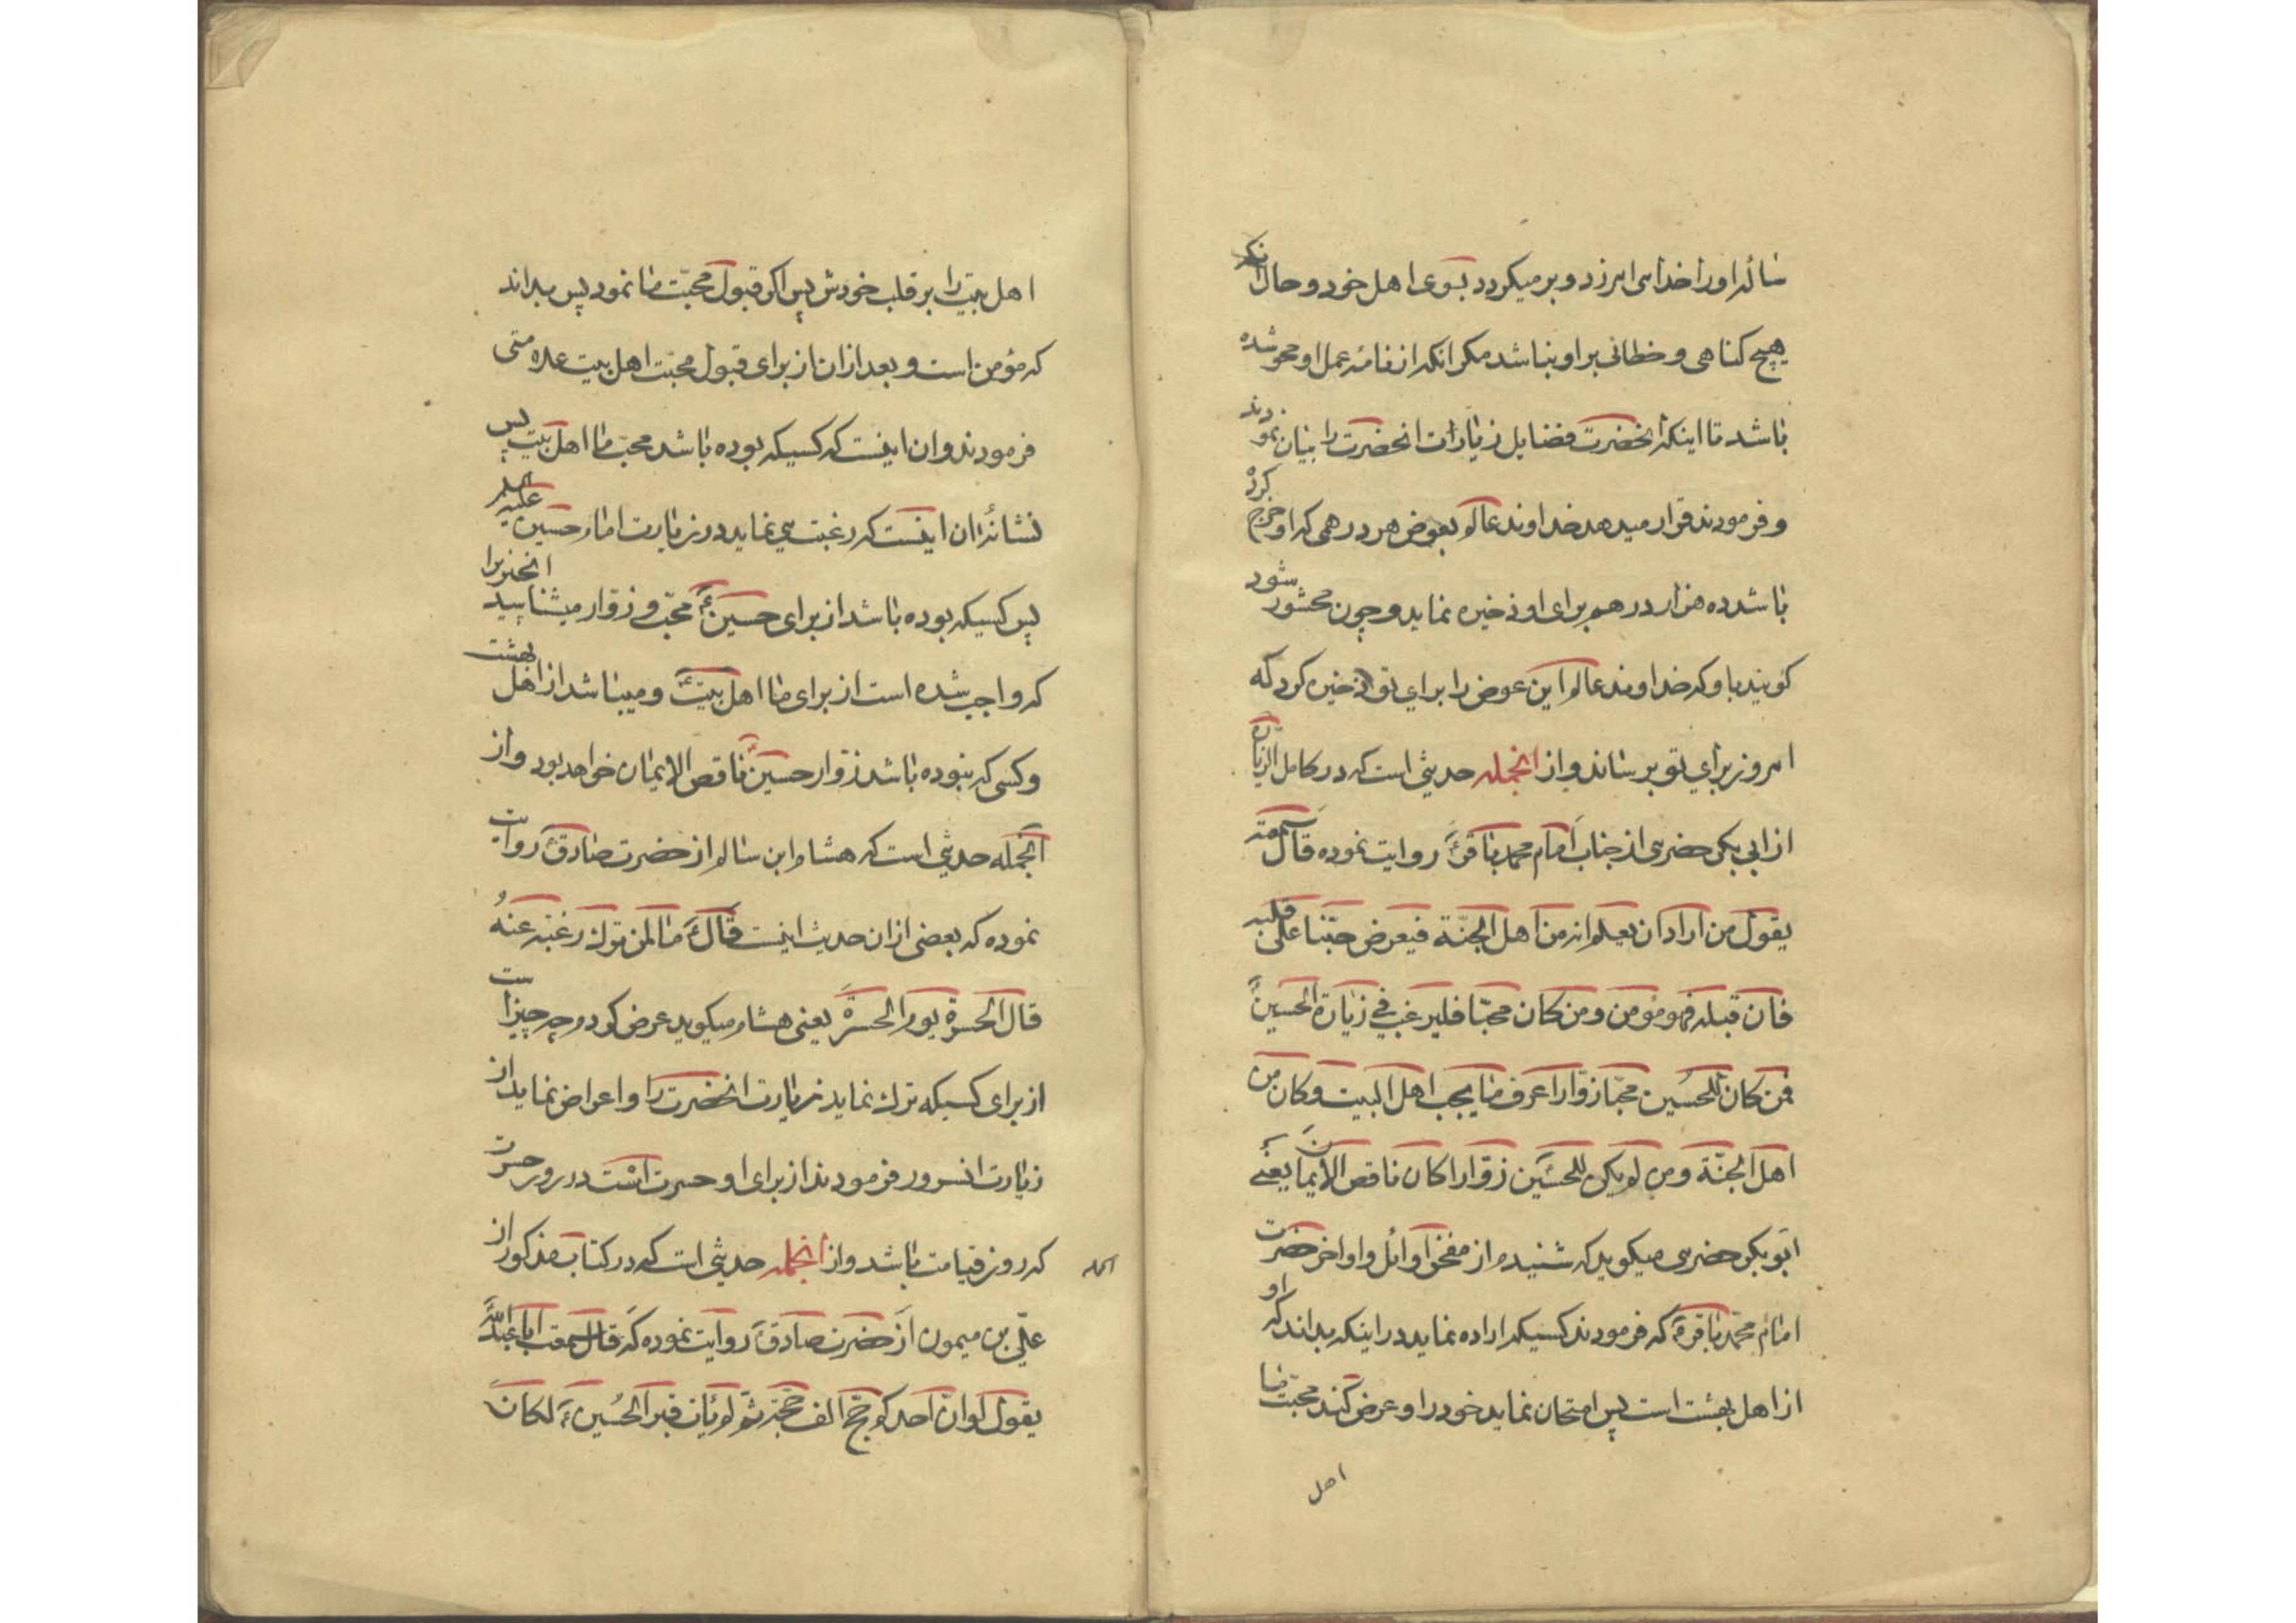 ساله او را خدا می امرزد و بر میکردد بسوی اهل خود و حال انکه
هیچ کناهی و خطائی بر او نباشد مکر انکه از نامه عمل او محو شده
باشد تا اینکه انحضرت فضایل زیارات انحضرت را بیان نمودند
و فرمودند قرار میدهد خداوند عالم بعوض هر درهمی که او خرج کرده
باشد ده هزار درهم برای او ذخیره نماید و چون محشور شود
کویند باو که خداوند عالم این عوض را برای تو ذخیره کرد که
امروز برای تو برساند و از انجمله حدیثی است که در کامل الزیاره
از ابی بکر حضرمی از جناب امام محمد باقر روایت نموده قال سمعته
یقول من اراد ان یعلم انه من اهل الجنّة فیعرض حبّنا علی قلبه
فان قبله فهو مؤمن و من کان محبّا فلیرغب فی زیارة الحسین
فمن کان للحسین محبّا زوّارا عرف ما یجب اهل البیت و کان من
اهل الجنّة و من لم یکن للحسین زوّارا کان ناقص الایمان یعنی
ابو بکر حضرمی میکوید که شنیدم از مفخر اوائل و اواخر حضرت
امام محمّد باقر ع که فرمودند کسیکه اراده نماید در اینکه بداند که او
از اهل بهشت است پس امتحان نماید خود را و عرض کند محبّت ما
اهل
اهل بیت را بر قلب خودش پس اکر قبول محبّت ما نمود پس بداند
که مؤمن است و بعد از ان از برای قبول محبّت اهل بیت علامتی
فرمودند و ان اینست که کسیکه بوده باشد محبّ ما اهل بیت پس
نشانۀ ان اینست که رغبت می نماید در زیارت امام حسین علیه السلم
پس کسیکه بوده باشد از برای حسین ع محبّ و زوّار میشناسید انچیزیرا
که واجب شده است از برای ما اهل بیت و میباشد از اهل بهشت
و کسی که نبوده باشد زوّار حسین ع ناقص الایمان خواهد بود و از
انجمله حدیثی است که هشام ابن سالم از حضرت صادق روایت
نموده که بعضی از ان حدیث اینست قال ما لمن ترک رغبة عنه
قال الحسرة یوم الحسرة یعنی هشام میکوید عرض کردم چه چیز است
از برای کسیکه ترک نماید زیارت انحضرت را و اعراض نماید از
زیارت انسرور فرمودند از برای او حسرت است در روز حسرت
که روز قیامت باشد و از انجمله حدیثی است که در کتاب مذکور از
علیّ بن میمون از حضرت صادق روایت نموده که قال سمعت ابا عبد اللّه
یقول لو انّ احدکم حجّ الف حجّة ثمّ لم یات قبر الحُسین ع لکان